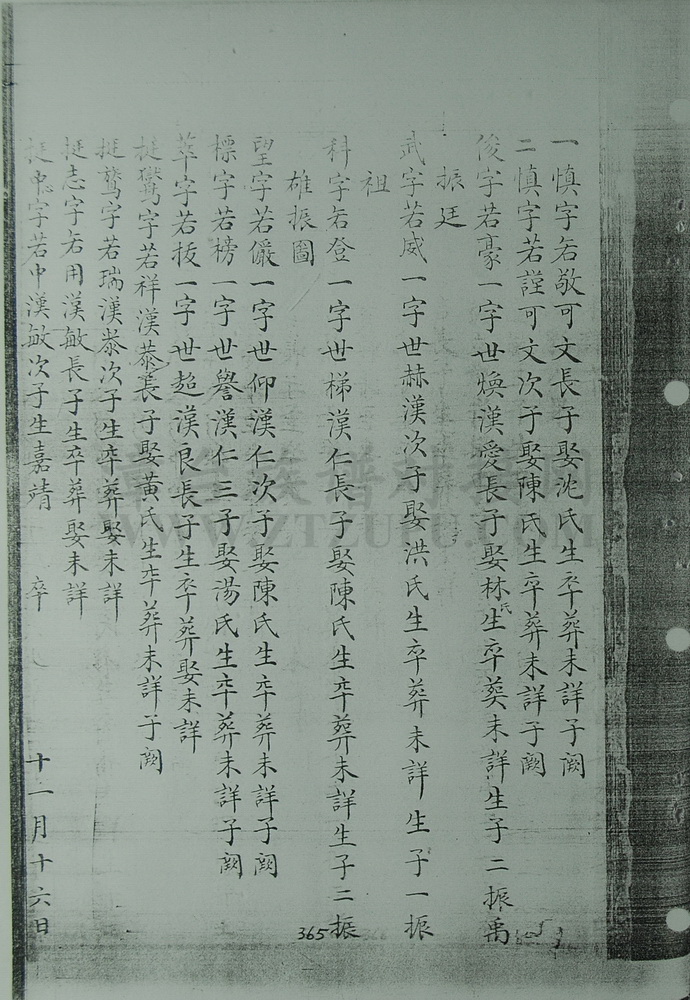 一慎字若敬可文長子娶沈氏生卒葬未詳子闕
二慎字若謹可文次子娶陳氏生卒葬未詳子闕
俊字若豪一字世煥漢愛長子娶林氏生卒葬未詳生子二振禹
振廷
武字若威一字世赫漢次子娶洪氏生卒葬未詳生子一振
祖
科字若登一字世梯漢仁長子娶陳氏生卒葬未詳生子二振
雄振圖
望字若儼一字世仰漢仁次子娶陳氏生卒葬未詳子闕
標字若榜一字世譽漢仁三子娶湯氏生卒葬未詳子闕
萃字若拔一字世超漢良長子生卒葬娶未詳
挺鸑字若祥漢恭長子娶黃氏生卒葬未詳子闕
挺鷟字若瑞漢恭次子生卒葬娶未詳
挺志字若用漢敏長子生卒葬娶未詳
挺忠字若中漢敏次子生嘉靖 卒 十二月十六日
365
WWW.ZTZUPU.COM